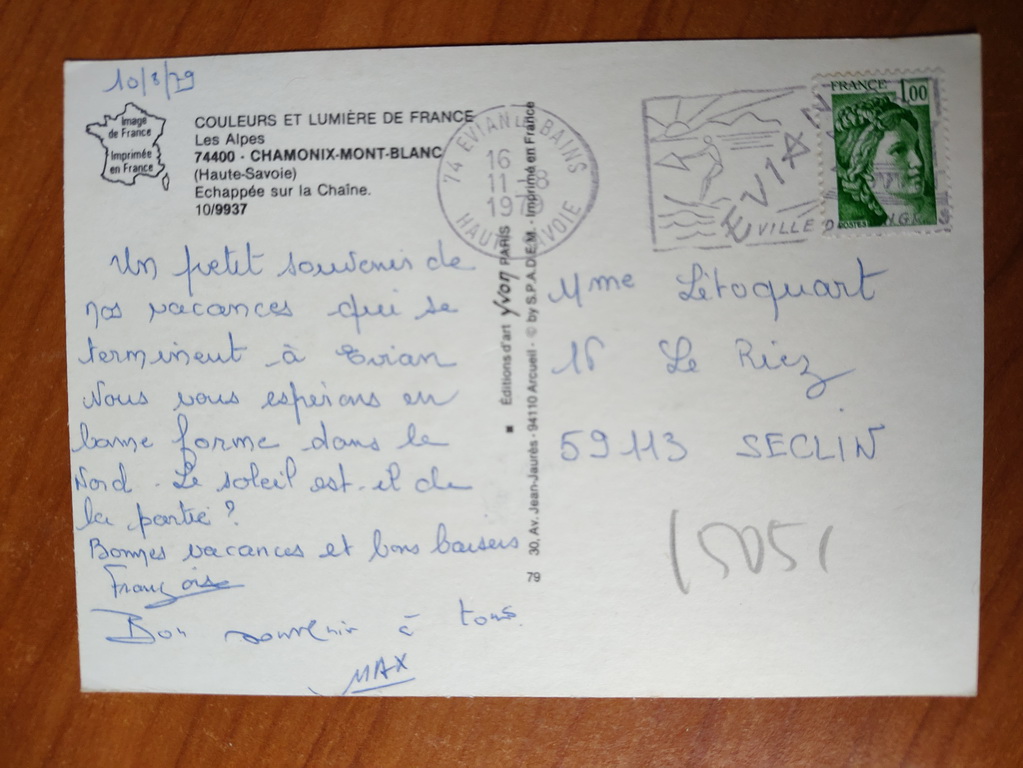 10/8/79
Image
de France
Imprimée
en France
COULEURS ET LUMIÈRE DE FRANCE
Les Alpes
74400 - CHAMONIX-MONT-BLANC
(Haute-Savoie)
Echappée sur la Chaîne.
10/9937
74 EVIAN LES BAINS
16
11-8
1979
HAUTE SAVOIE
EVIAN
VILLE D
FRANCE 1,00
POSTES
Un petit souvenir de
nos vacances qui se
terminent à Evian
Nous vous espérons en
bonne forme dans le
Nord. Le soleil est-il de
la partie ?
Bonnes vacances et bons baisers
Françoise
Bon souvenir à tous.
MAX
Editions d'art yvon PARIS
30, Av. Jean-Jaurès - 94110 Arcueil - © by S.P.A.D.E.M. - Imprimé en France
79
Mme Létoquart
Le Riez
59113 SECLIN